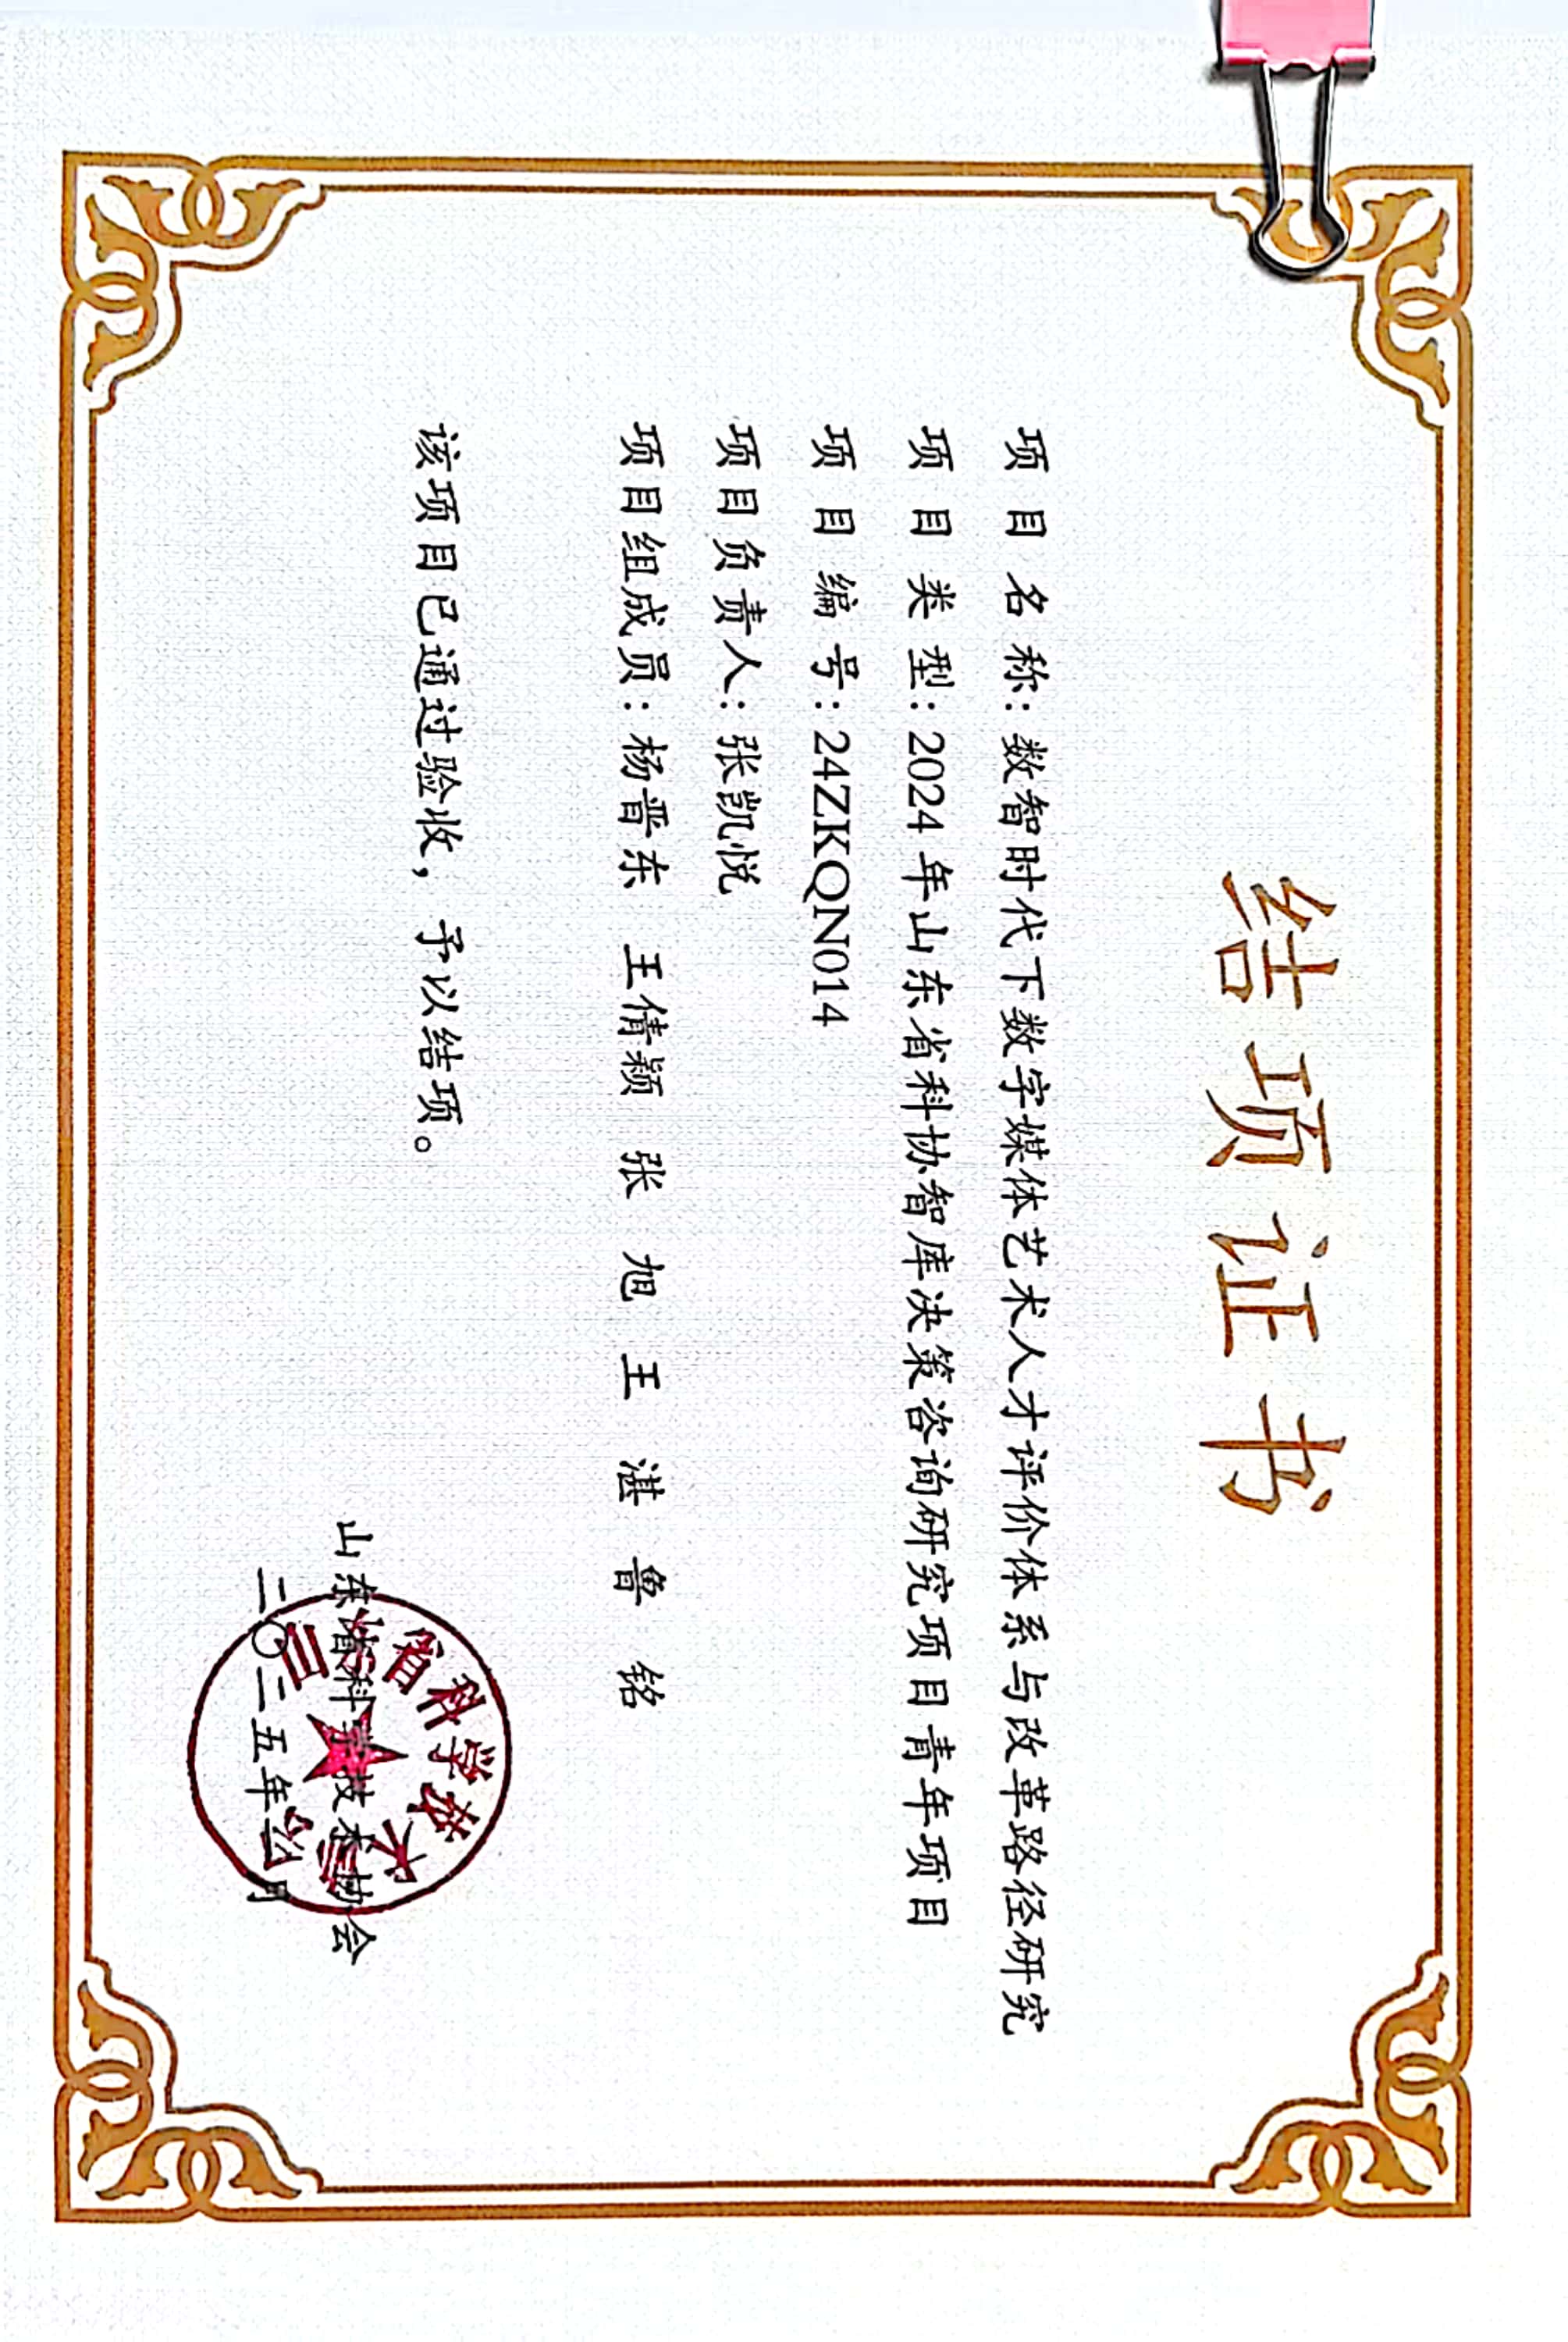 结项证书
项目名称：数智时代下数字媒体艺术人才评价体系与改革路径研究
项目类型：2024年山东省科协智库决策咨询研究项目青年项目
项目编号：24ZKQN014
项目负责人：张凯悦
项目组成员：杨晋东 王倩颖 张 旭 王 湛 鲁 铭
该项目已通过验收，予以结项。
山东省科学技术协会
二〇二五年 月
省科学技术